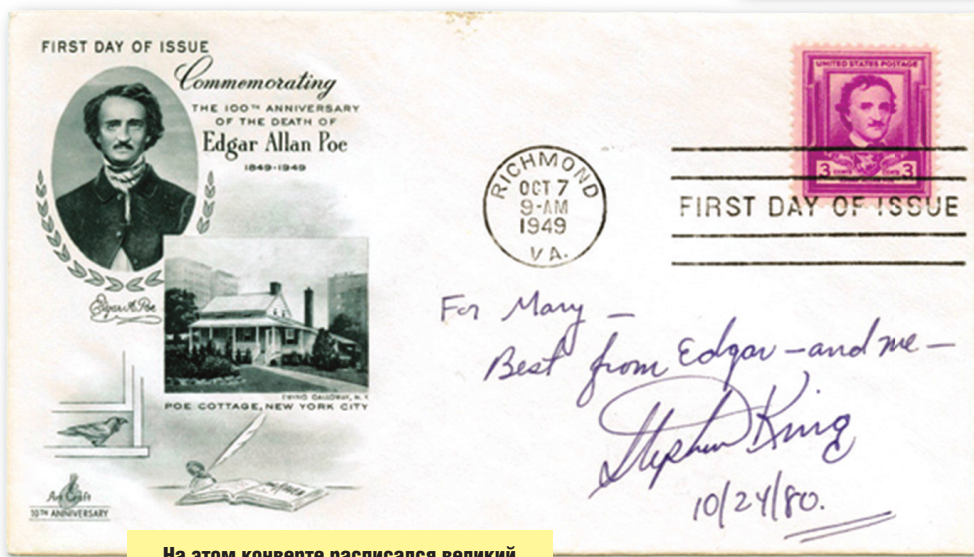 FIRST DAY OF ISSUE
Commemorating
THE 100TH ANNIVERSARY
OF THE DEATH OF
Edgar Allan Poe
1849-1949
Edgar A. Poe
EWING GALLOWAY, N.Y.
POE COTTAGE, NEW YORK CITY
Art Craft
10TH ANNIVERSARY
RICHMOND
OCT 7
9-AM
1949
VA.
UNITED STATES POSTAGE
3 CENTS CENTS 3
FIRST DAY OF ISSUE
For Mary —
Best from Edgar — and me —
Stephen King
10/24/80.
На этом конверте расписался великий